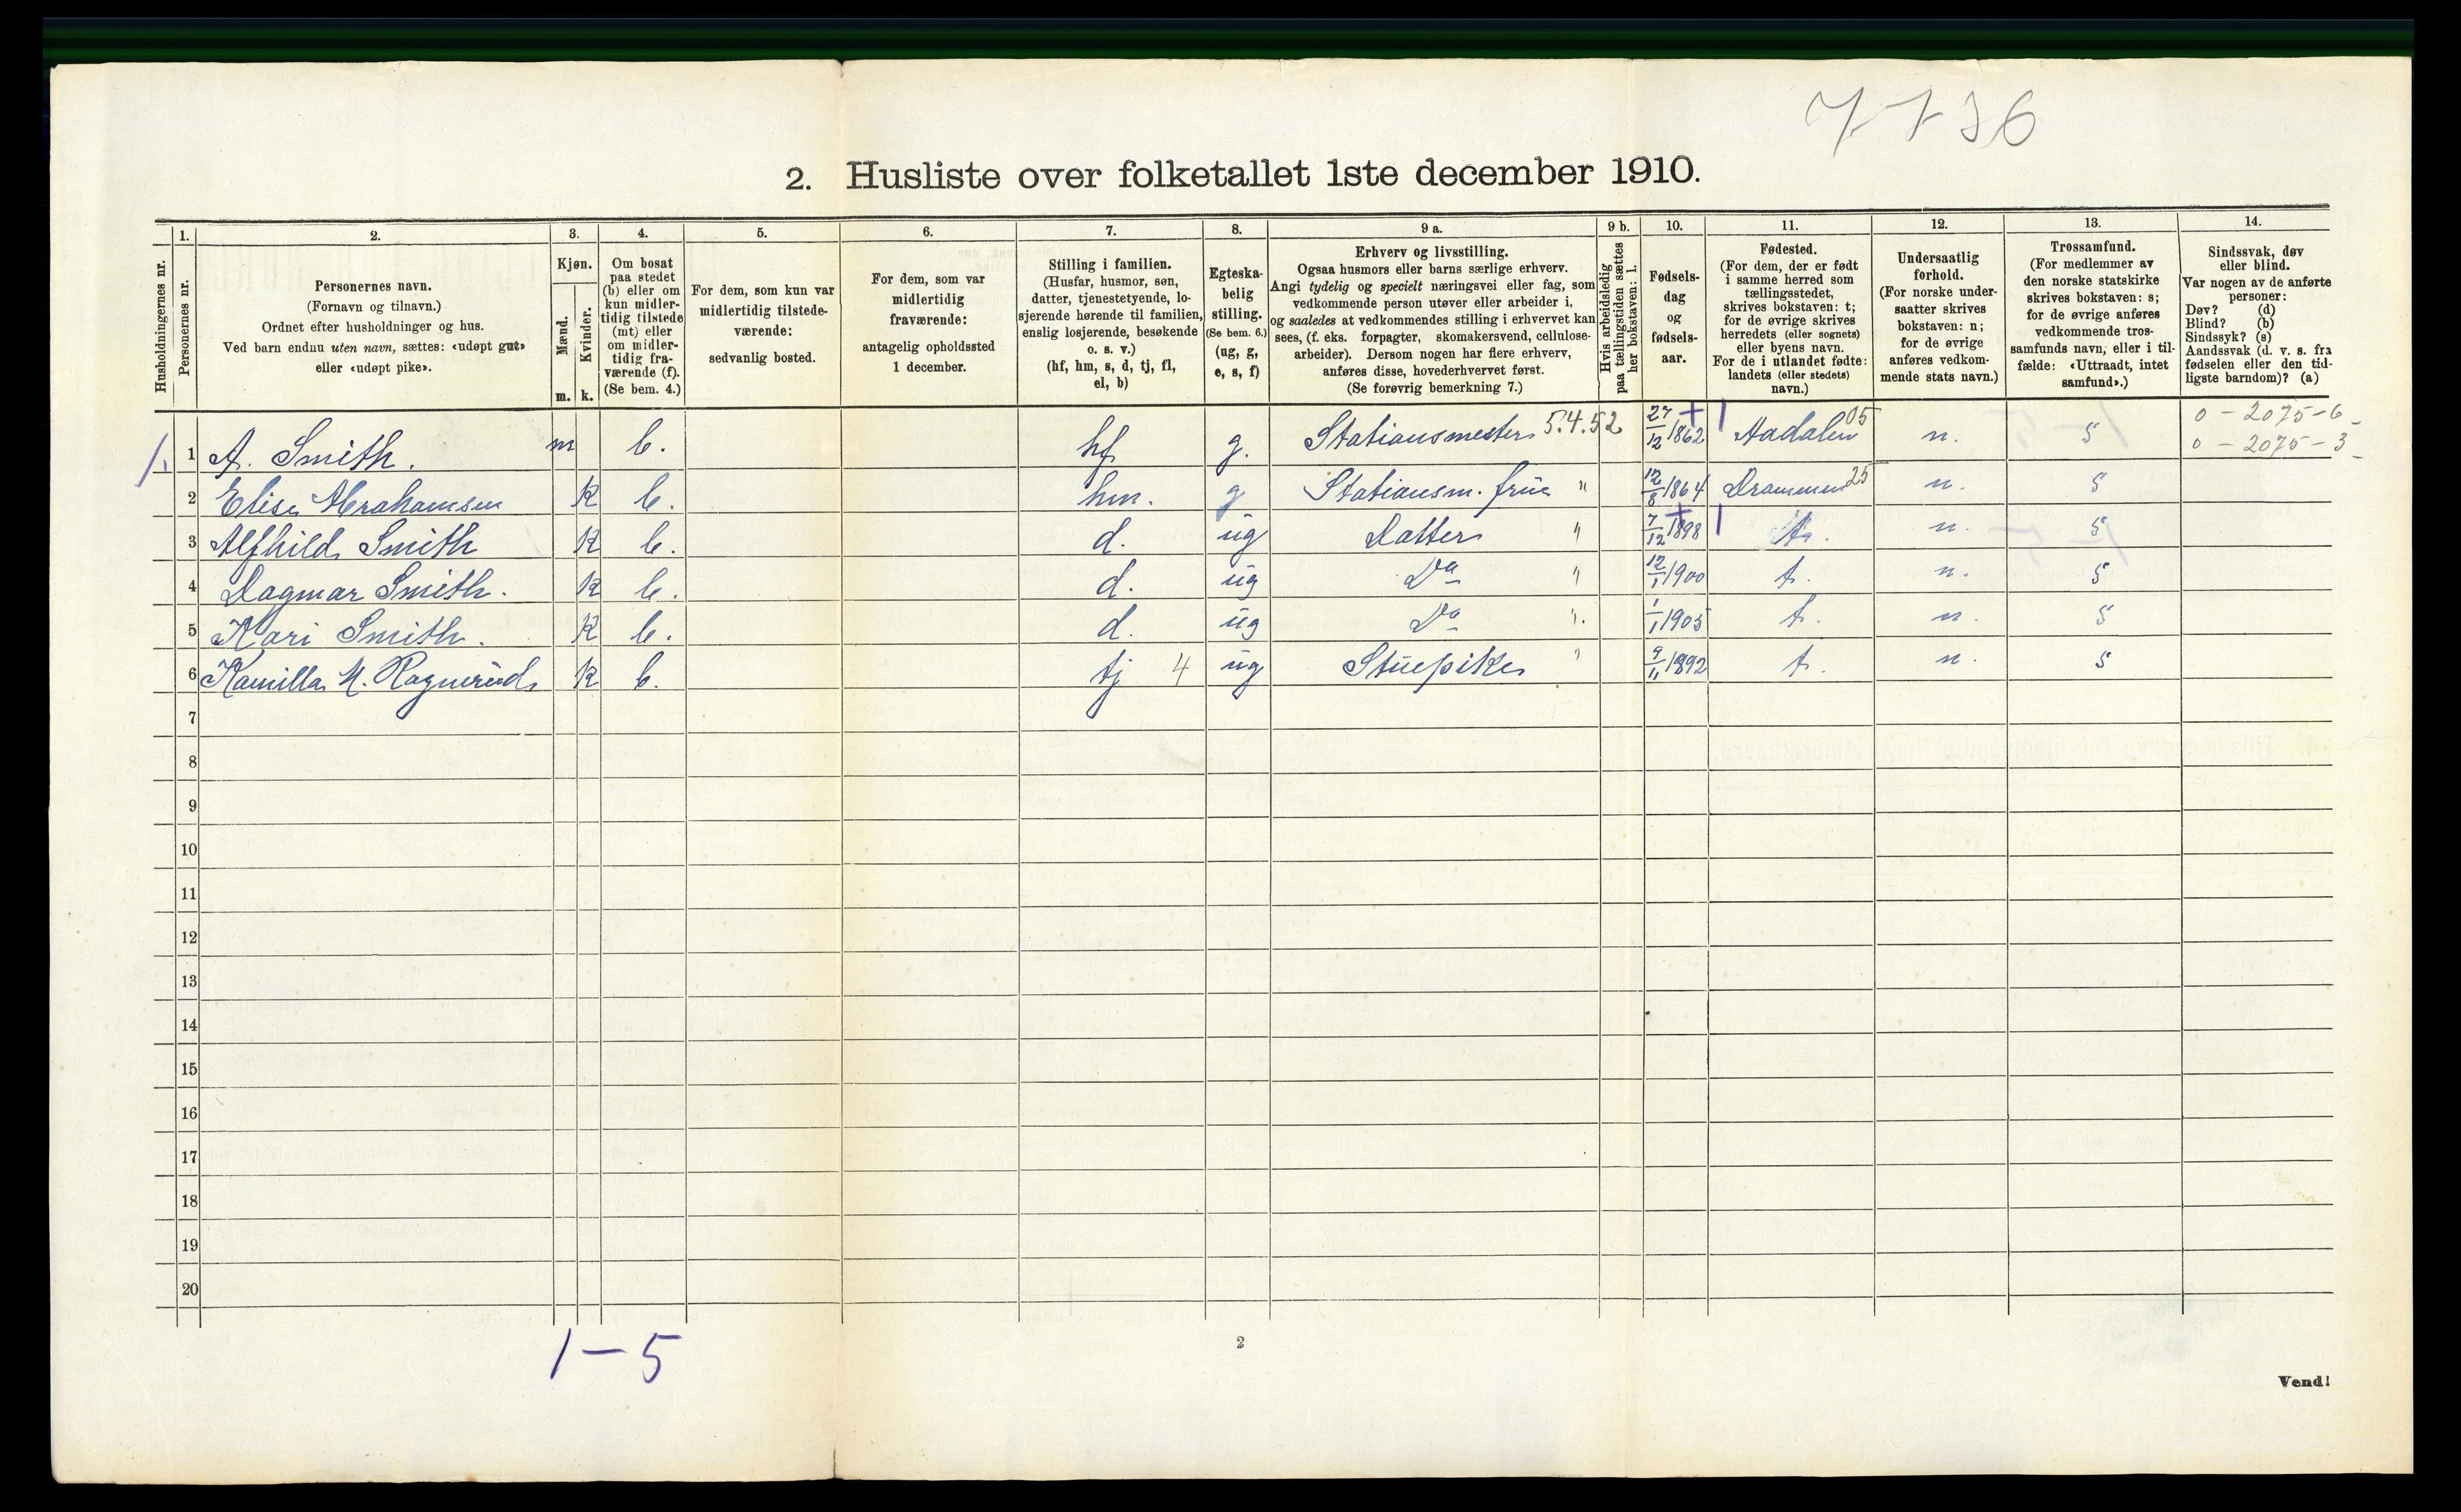 7736
2. Husliste over folketallet 1ste december 1910.
Husholdningernes nr.
1. Personernes nr.
2. Personernes navn.
(Fornavn og tilnavn.)
Ordnet efter husholdninger og hus.
Ved barn endnu uten navn, sættes: «udøpt gut»
eller «udøpt pike».
3. Kjøn.
Mænd. Kvinder.
m. k.
4. Om bosat
paa stedet
(b) eller om
kun midler-
tidig tilstede
(mt) eller
om midler-
tidig fra-
værende (f).
(Se bem. 4.)
5. For dem, som kun var
midlertidig tilstede-
værende:
sedvanlig bosted.
6. For dem, som var
midlertidig
fraværende:
antagelig opholdssted
1 december.
7. Stilling i familien.
(Husfar, husmor, søn,
datter, tjenestetyende, lo-
sjerende hørende til familien,
enslig losjerende, besøkende
o. s. v.)
(hf, hm, s, d, tj, fl,
el, b)
8. Egteska-
belig
stilling.
(Se bem. 6.)
(ug, g,
e, s, f)
9 a. Erhverv og livsstilling.
Ogsaa husmors eller barns særlige erhverv.
Angi tydelig og specielt næringsvei eller fag, som
vedkommende person utøver eller arbeider i,
og saaledes at vedkommendes stilling i erhvervet kan
sees, (f. eks. forpagter, skomakersvend, cellulose-
arbeider). Dersom nogen har flere erhverv,
anføres disse, hovederhvervet først.
(Se forøvrig bemerkning 7.)
9 b. Hvis arbeidsledig
paa tællingstiden sættes
her bokstaven: l.
10. Fødsels-
dag
og
fødsels-
aar.
11. Fødested.
(For dem, der er født
i samme herred som
tællingsstedet,
skrives bokstaven: t;
for de øvrige skrives
herredets (eller sognets)
eller byens navn.
For de i utlandet fødte:
landets (eller stedets)
navn.)
12. Undersaatlig
forhold.
(For norske under-
saatter skrives
bokstaven: n;
for de øvrige
anføres vedkom-
mende stats navn.)
13. Trossamfund.
(For medlemmer av
den norske statskirke
skrives bokstaven: s;
for de øvrige anføres
vedkommende tros-
samfunds navn, eller i til-
fælde: «Uttraadt, intet
samfund».)
14. Sindssvak, døv
eller blind.
Var nogen av de anførte
personer:
Døv? (d)
Blind? (b)
Sindssyk? (s)
Aandssvak (d. v. s. fra
fødselen eller den tid-
ligste barndom)? (a)
1. 1 A. Smith. m b. hf g. Stationsmester 5.4.52 27/12 1862 Aadalen 05 n. s 0-2075-6
0-2075-3
2 Elise Abrahamsen k b. hm. g Stationsm. frue " 12/8 1864 Drammen 25 n. s
3 Alfhild Smith k b. d. ug Datter " 7/12 1898 t. n. s
4 Dagmar Smith. k b. d. ug Do " 12/1 1900 t. n. s
5 Kari Smith. k b. d. ug Do " 1/1 1905 t. n. s
6 Kamilla M. Ragnerud k b. tj 4 ug Stuepike " 9/11 1892 t. n. s
7
8
9
10
11
12
13
14
15
16
17
18
19
20
1-5
2
Vend!